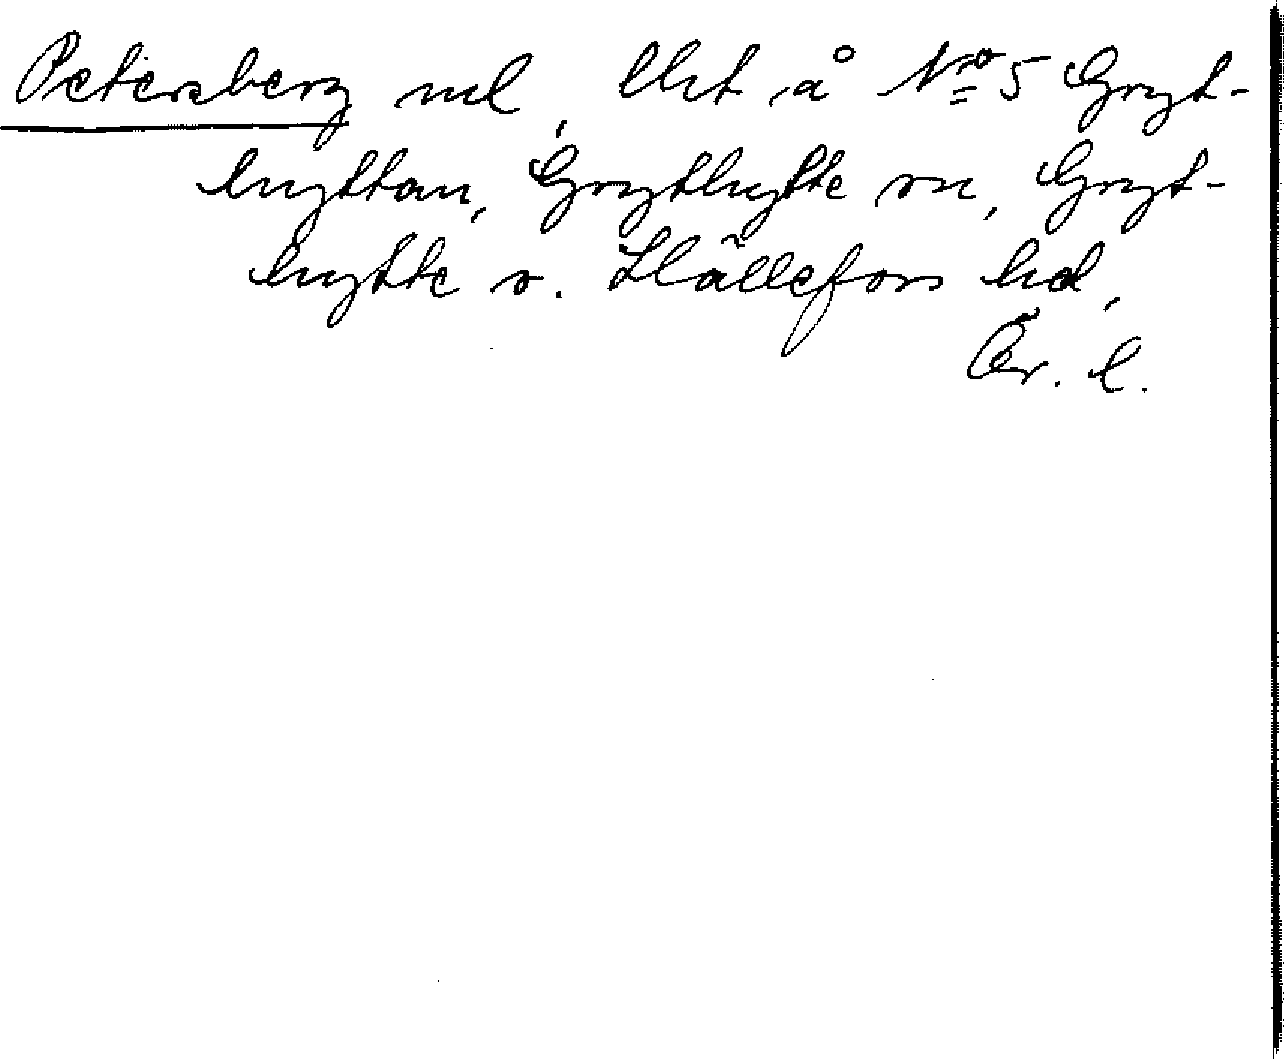 Petersberg ml, Utst. å No 5 Gryt-
hyttan, Grythytte sn, Gryt-
hytte o. Hällefors hd,
Ör. l.